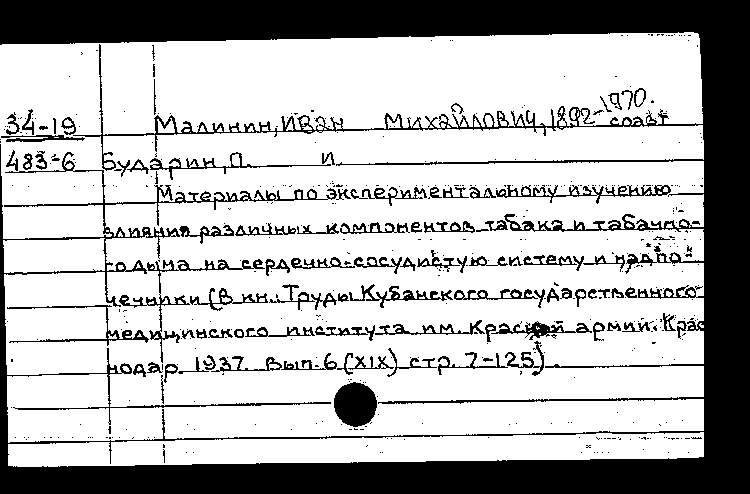 34-19 Малинин, Иван Михайлович, 1892-1970. соавт
483-6 Бударин, П. И.
Материалы по экспериментальному изучению
влияния различных компонентов табака и табачно-
го дыма на сердечно-сосудистую систему и надпо-
чечники (В кн.: Труды Кубанского государственного
медицинского института им. Красной армии. Крас
нодар. 1937. Вып. 6 (XIX) стр. 7-125).